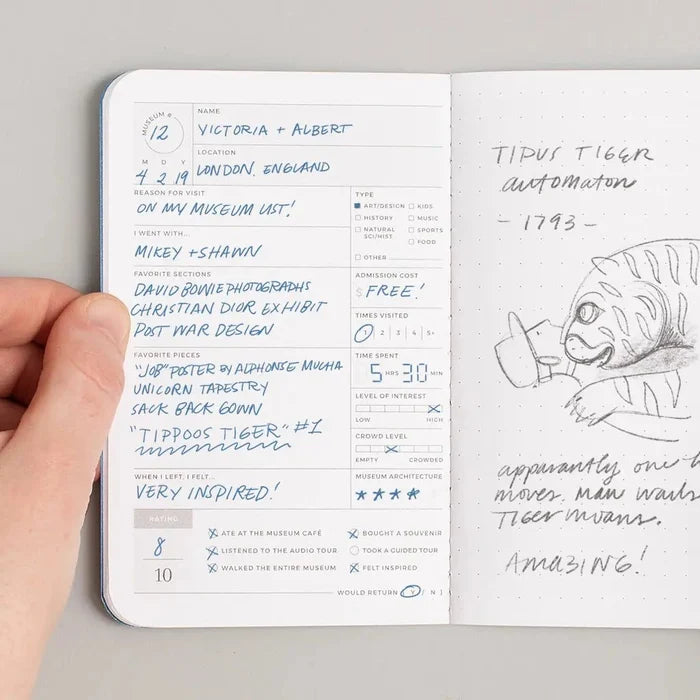 MUSEUM #
12
NAME
VICTORIA + ALBERT
M D Y
4 2 19
LOCATION
LONDON, ENGLAND
REASON FOR VISIT
ON MY MUSEUM LIST!
I WENT WITH...
MIKEY + SHAWN
FAVORITE SECTIONS
DAVID BOWIE PHOTOGRAPHS
CHRISTIAN DIOR EXHIBIT
POST WAR DESIGN
FAVORITE PIECES
"JOB" POSTER BY ALPHONSE MUCHA
UNICORN TAPESTRY
SACK BACK GOWN
"TIPPOOS TIGER" #1
WHEN I LEFT, I FELT...
VERY INSPIRED!
TYPE
ART/DESIGN KIDS
HISTORY MUSIC
NATURAL SPORTS
SCI/HIST FOOD
OTHER
ADMISSION COST
$ FREE!
TIMES VISITED
1 2 3 4 5+
TIME SPENT
5 HRS 30 MIN
LEVEL OF INTEREST
LOW HIGH
CROWD LEVEL
EMPTY CROWDED
MUSEUM ARCHITECTURE
RATING
8
10
X ATE AT THE MUSEUM CAFÉ X BOUGHT A SOUVENIR
X LISTENED TO THE AUDIO TOUR TOOK A GUIDED TOUR
X WALKED THE ENTIRE MUSEUM X FELT INSPIRED
WOULD RETURN Y / N
TIPUS TIGER
automaton
- 1793 -
apparantly one
moves. Man wails
TIGER moans.
AMAZING!